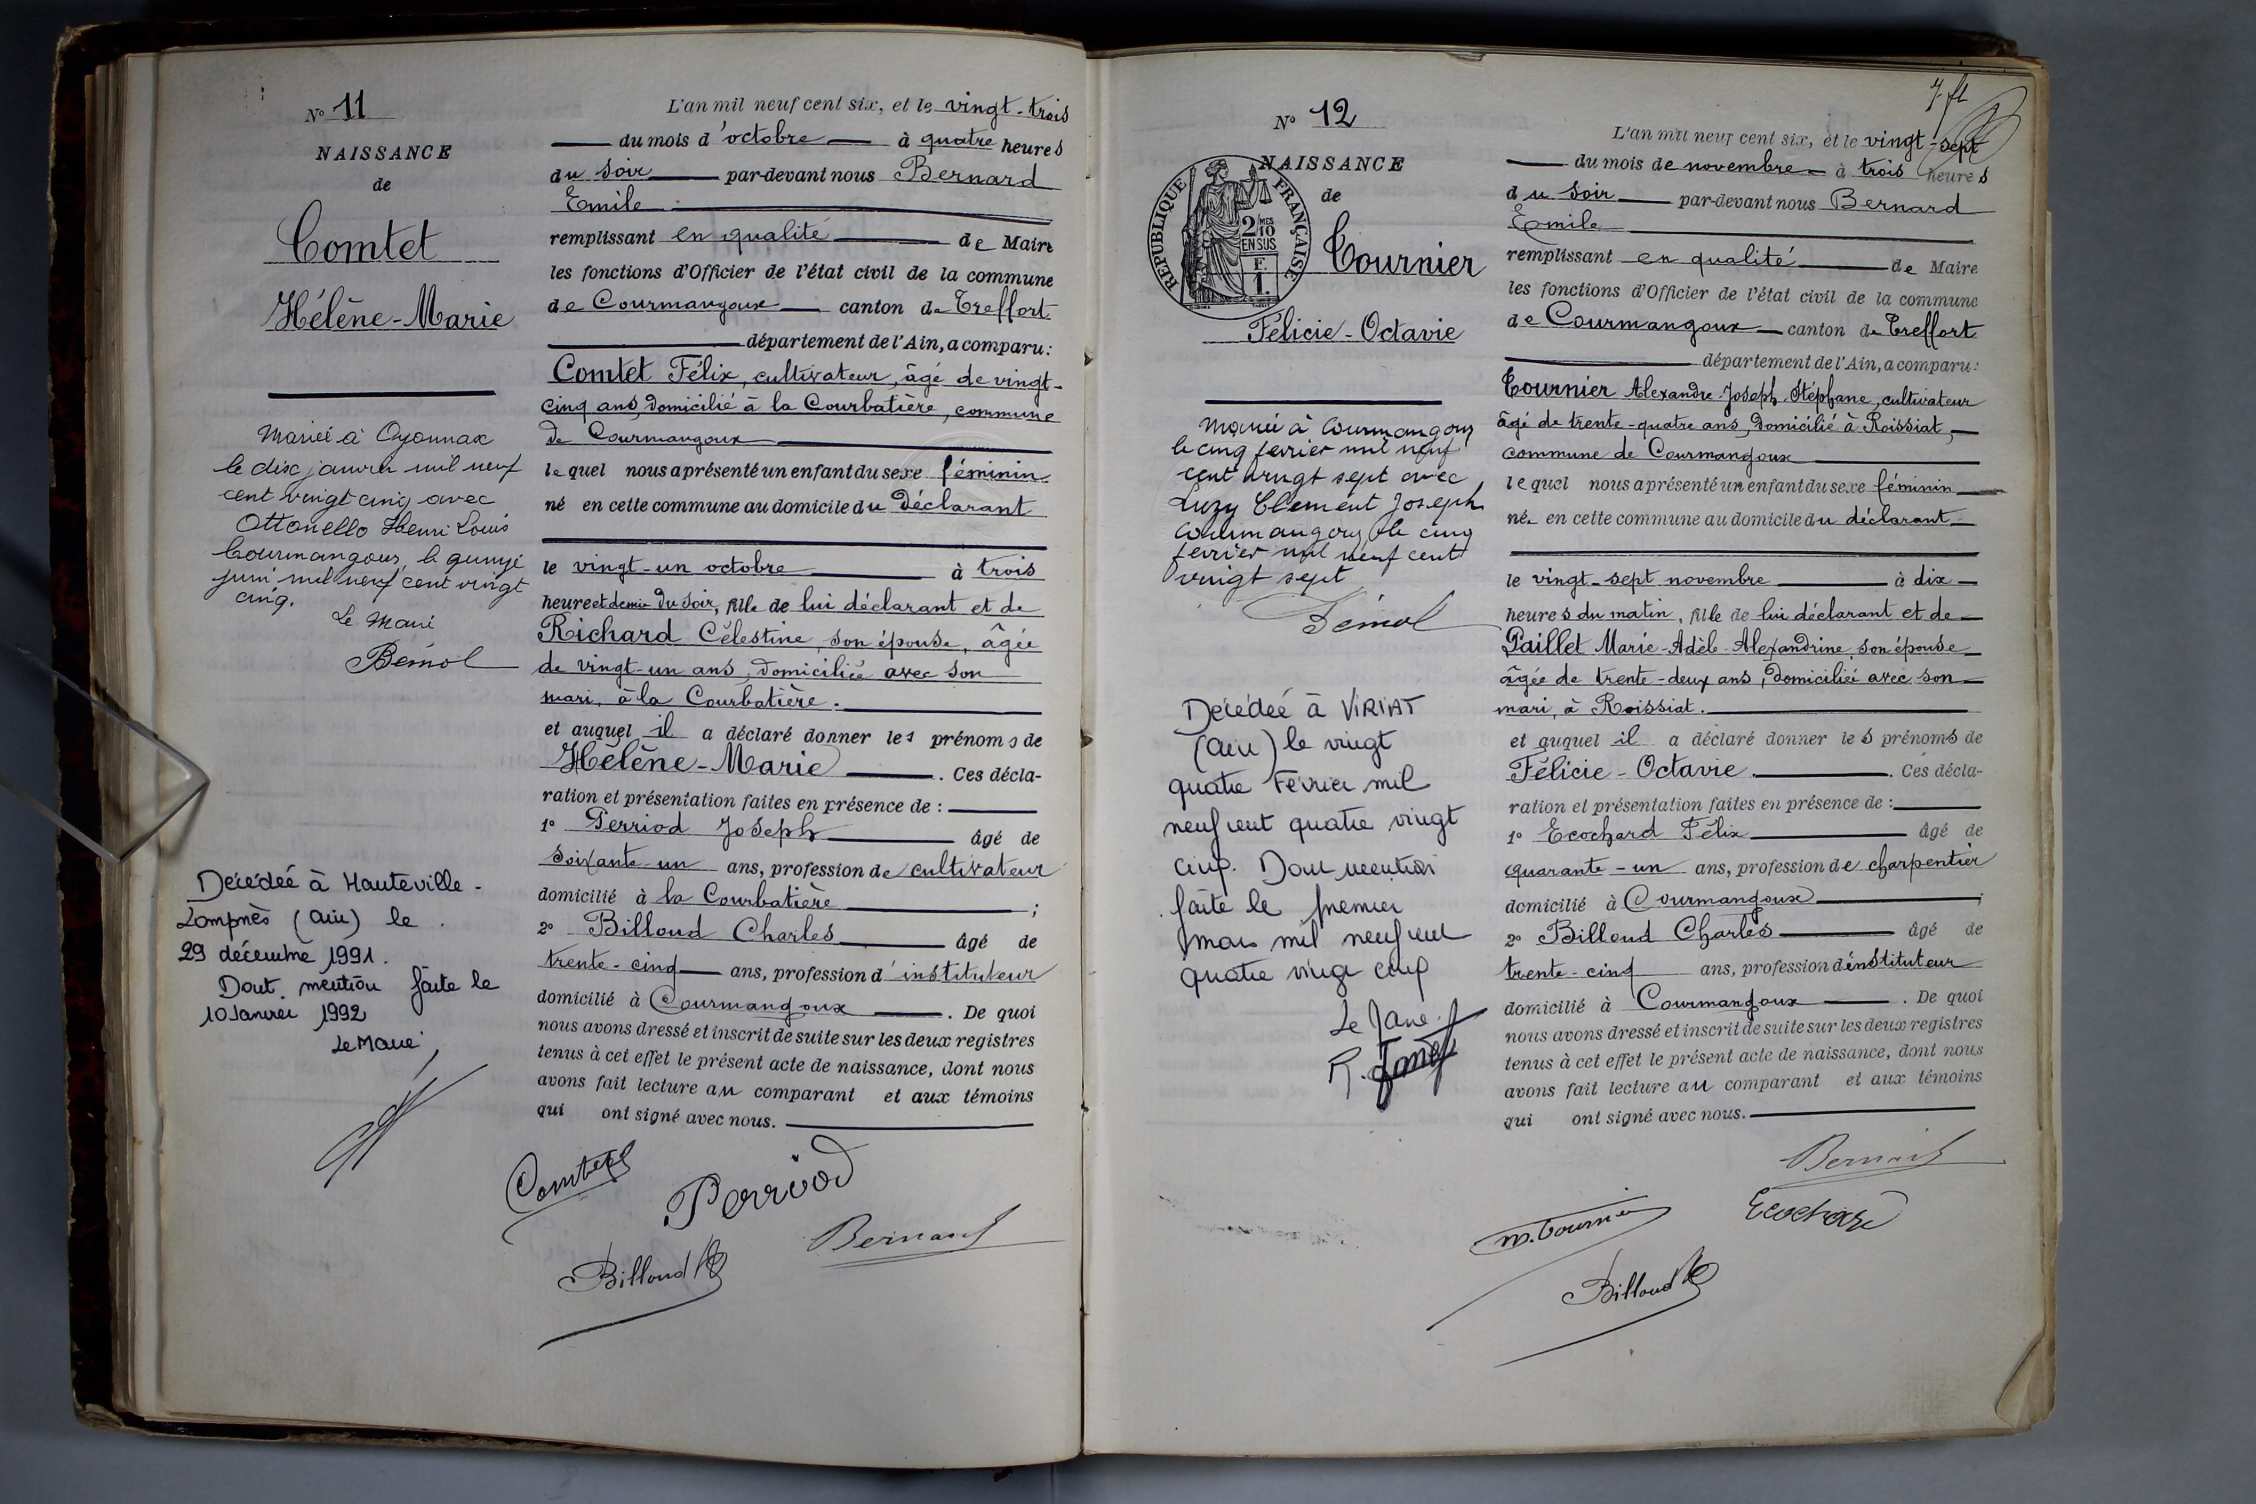 N° 11
NAISSANCE
de
Comtet
Hélène-Marie
Mariée à Oyonnax
le dix janvier mil neuf
cent vingt cinq avec
Ottonello Henri Louis
Courmangoux, le quinze
juin mil neuf cent vingt
cinq.
Le Maire
Bémol
Décédée à Hauteville-
Lompnès (Ain) le
29 décembre 1991.
Dont mention faite le
10 Janvier 1992
Le Maire,
L'an mil neuf cent six, et le vingt-trois
du mois d'octobre à quatre heures
du soir par-devant nous Bernard
Emile
remplissant en qualité de Maire
les fonctions d'Officier de l'état civil de la commune
de Courmangoux canton de Treffort
département de l'Ain, a comparu :
Comtet Félix, cultivateur, âgé de vingt-
cinq ans, domicilié à la Courbatière, commune
de Courmangoux
lequel nous a présenté un enfant du sexe féminin
né en cette commune au domicile du déclarant
le vingt-un octobre à trois
heure et demie du soir, fille de lui déclarant et de
Richard Célestine, son épouse, âgée
de vingt-un ans, domiciliée avec son
mari, à la Courbatière.
et auquel il a déclaré donner les prénoms de
Hélène-Marie. Ces décla-
ration et présentation faites en présence de :
1° Perriod Joseph âgé de
soixante-un ans, profession de cultivateur
domicilié à la Courbatière ;
2° Billoud Charles âgé de
trente-cinq ans, profession d'instituteur
domicilié à Courmangoux. De quoi
nous avons dressé et inscrit de suite sur les deux registres
tenus à cet effet le présent acte de naissance, dont nous
avons fait lecture au comparant et aux témoins
qui ont signé avec nous.
Comtet
Perriod
Bernard
Billoud
N° 12
NAISSANCE
de
RÉPUBLIQUE FRANÇAISE
2 MES
10
EN SUS
F.
1.
Tournier
Félicie-Octavie
Mariée à Courmangoux
le cinq février mil neuf
cent vingt sept avec
Luzy Clément Joseph
Courmangoux, le cinq
février mil neuf cent
vingt sept
Bémol
Décédée à VIRIAT
(Ain) le vingt
quatre Février mil
neuf cent quatre vingt
cinq. Dont mention
faite le premier
mars mil neuf cent
quatre vingt cinq
Le Maire
7 ft
L'an mil neuf cent six, et le vingt-sept
du mois de novembre à trois heures
du soir par-devant nous Bernard
Emile
remplissant en qualité de Maire
les fonctions d'Officier de l'état civil de la commune
de Courmangoux canton de Treffort
département de l'Ain, a comparu :
Tournier Alexandre-Joseph-Stéphane, cultivateur
âgé de trente-quatre ans, domicilié à Roissiat,
commune de Courmangoux
lequel nous a présenté un enfant du sexe féminin
né en cette commune au domicile du déclarant
le vingt-sept novembre à dix
heures du matin, fille de lui déclarant et de
Paillet Marie-Adèle-Alexandrine, son épouse
âgée de trente-deux ans, domiciliée avec son
mari, à Roissiat.
et auquel il a déclaré donner les prénoms de
Félicie-Octavie. Ces décla-
ration et présentation faites en présence de :
1° Ecochard Félix âgé de
quarante-un ans, profession de charpentier
domicilié à Courmangoux ;
2° Billoud Charles âgé de
trente-cinq ans, profession d'instituteur
domicilié à Courmangoux. De quoi
nous avons dressé et inscrit de suite sur les deux registres
tenus à cet effet le présent acte de naissance, dont nous
avons fait lecture au comparant et aux témoins
qui ont signé avec nous.
Bernard
m. Tournier
Ecochard
Billoud